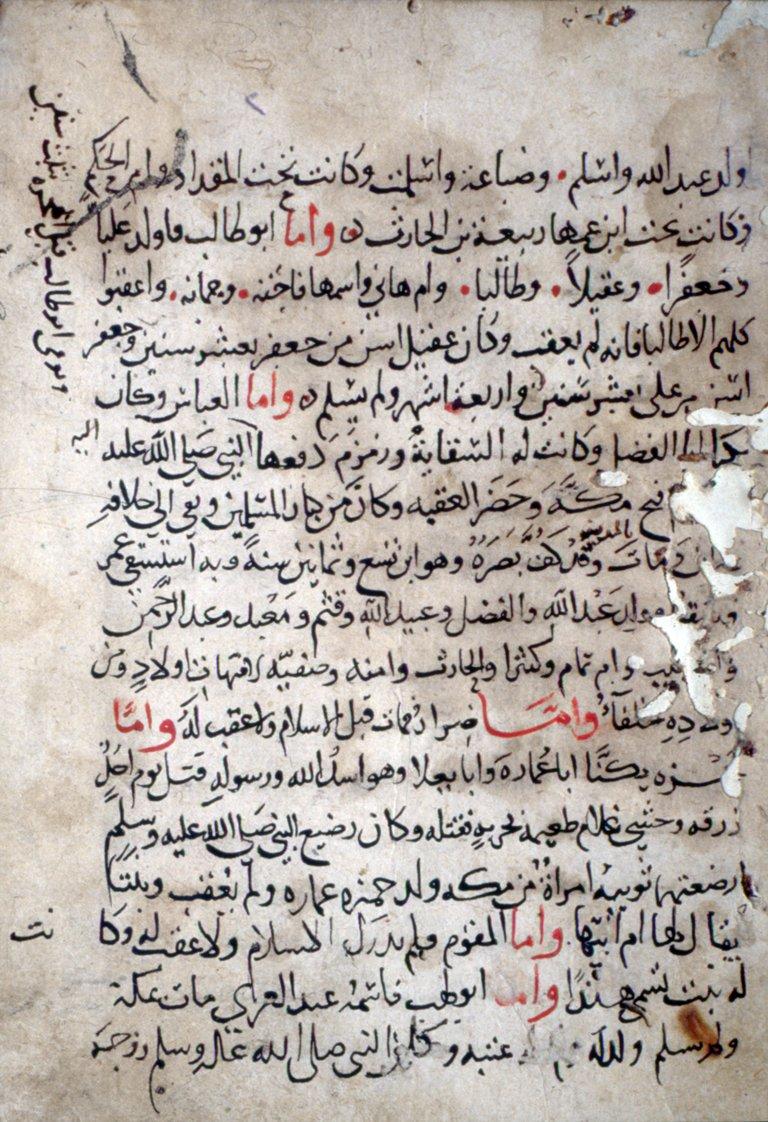 ولد عبد الله واسلم. وضباعة واسلمت وكانت تحت المقداد وام الحكم
وكانت تحت ابن عمها ربيعة بن الحارث واما ابو طالب فاولد عليا
وجعفرا. وعقيلاً. وطالبا. وام هاني واسمها فاخته. وجمانه. واعقبوا
كلهم الا طالبا فانه لم يعقب وكان عقيل اسن من جعفر بعشر سنين وجعفر
اسن من علي بعشر سنين واربعة اشهر ولم يسلم واما العباس وكان
الفضل وكانت له السقاية وزمزم دفعها النبي صَلى الله عليه اليه
فتح مكَّة وحضر العقبه وكان من كبار المسلمين وبقي الي خلافة
مات بالمدينه وقد كف بصره وهو ابن تسع وثمانين سنةً وبه استسقى عمر
عبد الله والفضل وعبيد الله وقثم ومعبد وعبد الرحمن
وام تمام وكثيرا والحارث وامنه وصفيّه لامهات اولادٍ ومن
ولده خلفآءُ وامَّا ضرار فمات قبل الاسلام ولا عقب لهُ وامَّا
حمزه يكنَّا ابا عُماره وابا يعلا وهو اسدُ الله ورسوله قتل يوم احدٍ
زرقه وحشي غلام طعيمه بحربةٍ فقتله وكان رضيع النبي صَلى الله عليه وسلم
ارضعتهما ثويبه امراةٌ من مكه ولد حمزه عماره ولم يعقب وبنتًا
يقال لها ام ابيها واما المقوم فلم يدرك الاسلام ولا عقب له وكا نت
له بنت تسمى هندًا واما ابو لهب فاسمه عبد العزي مات بمكة
ولم يسلم ولده عتبه وكان النبي صلى الله عليه وسلم زوجه
وتوفي ابو طالب قبل الهجره بثلث سنين